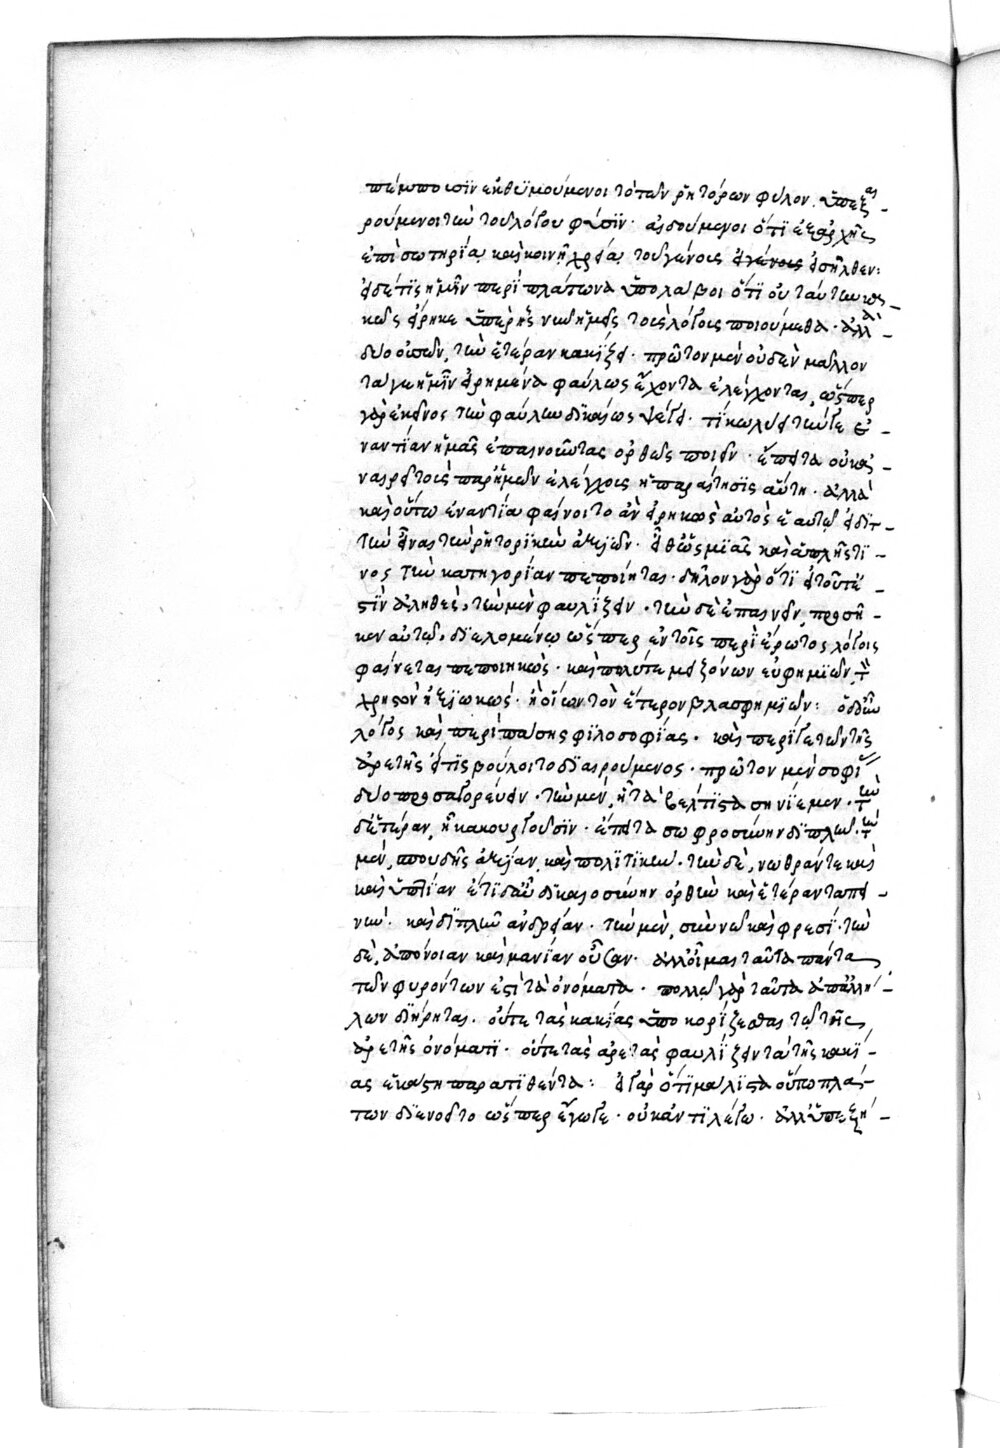 πέμπουσιν ἐνθυμούμενοι τὸ τῶν ῥητόρων φῦλον. ὑπεξαι-
ρούμενοι τὴν τοῦ λόγου φύσιν· αἰδούμενοι ὅτι ἐξ ἀρχῆς
ἐπὶ σωτηρία καὶ κοινῆ χρεία τοῦ γένους εἰσῆλθεν:
εἰ δέ τις ἡμῖν περὶ πλάτωνα ὑπολάβοι ὅτι οὐ ταύτην κα-
κῶς εἴρηκε ὑπὲρ ἧς νῦν ἡμεῖς τοὺς λόγους ποιούμεθα· ἀλλὰ
δυο οὐσῶν, τὴν ἑτέραν κακίζει· πρῶτον μὲν οὐδὲν μᾶλλον
τά γε ἡμῖν εἰρημένα φαύλως ἔχοντα ἐλέγχονται, ὥσπερ
γὰρ ἐκεῖνος τὴν φαύλην δικαίως ψέγει· τί κωλύει τήν γε ἐ-
ναντίαν ἡμᾶς ἐπαινοῦντας ὀρθῶς ποιεῖν· ἔπειτα οὐκ ἀ-
ναιρεῖ τοὺς παρ' ἡμῶν ἐλέγχους ἡ παραίτησις αὕτη· ἀλλὰ
καὶ οὕτω ἐναντία φαίνοιτο ἂν εἰρηκὼς αὐτὸς ἑαυτῷ εἰ διτ-
τὴν εἶναι τὴν ῥητορικὴν ἀξιῶν· εἶθ' ὡς μιᾶς καὶ ἁπλῆς τι-
νος τὴν κατηγορίαν πεποίηται· δῆλον γὰρ ὅτι εἰ τοῦτ' ἔ-
στιν ἀληθὲς, τὴν μὲν φαυλίζειν· τὴν δὲ ἐπαινεῖν, προσῆ-
κεν αὐτῷ, διελομένῳ ὥσπερ ἐν τοῖς περὶ ἔρωτος λόγοις
φαίνεται πεποιηκὼς· καὶ πολύ γε μειζόνων εὐφημιῶν, τὸν
χρηστὸν ἠξιωκώς· ἢ οἵων τὸν ἕτερον βλασφημιῶν: ὁ δ' αὐτὸς
λόγος καὶ περὶ πάσης φιλοσοφίας. καὶ περί γε τῶν τῆς
ἀρετῆς εἴ τις βούλοιτο διαιρούμενος· πρῶτον μὲν σοφίας
δυο προσαγορεύειν· τὴν μὲν, ἣ τὰ βέλτιστα σηνίεμεν· τὴν
δ' ἑτέραν, ἣ κακουργοῦσιν· ἔπειτα σωφροσύνην διπλῆν· τὴν
μὲν, σπουδῆς ἀξίαν, καὶ πολιτικὴν· τὴν δὲ, νωθράν τε καὶ
καὶ ὑπτίαν ἔτι δ' αὖ δικαιοσύνην ὀρθὴν καὶ ἑτέραν ταπει-
νὴν· καὶ διπλῆν ἀνδρείαν· τὴν μὲν, σὺν νῷ καὶ φρεσί· τὴν
δὲ, ἀπόνοιαν καὶ μανίαν οὖσαν· ἀλλ' οἶμαι ταῦτα πάντα
τῶν φυρόντων ἐστὶ τὰ ὀνόματα· πολλῷ γὰρ ταῦτα ἀπ' ἀλλή-
λων διῄρηται. οὔτε τὰς κακίας ὑποκορίζεσθαι τῷ τῆς
ἀρετῆς ὀνόματι· οὔτε τὰς ἀρετὰς φαυλίζειν τὰ τῆς κακί-
ας ἑκάστη παρατιθέντα: εἰ γὰρ ὅτι μάλιστα οὕτω πλά-
των διενοεῖτο ὥσπερ ἔγωγε· οὐκ ἀντιλέγω· ἀλλ' ὑπεξῃ-